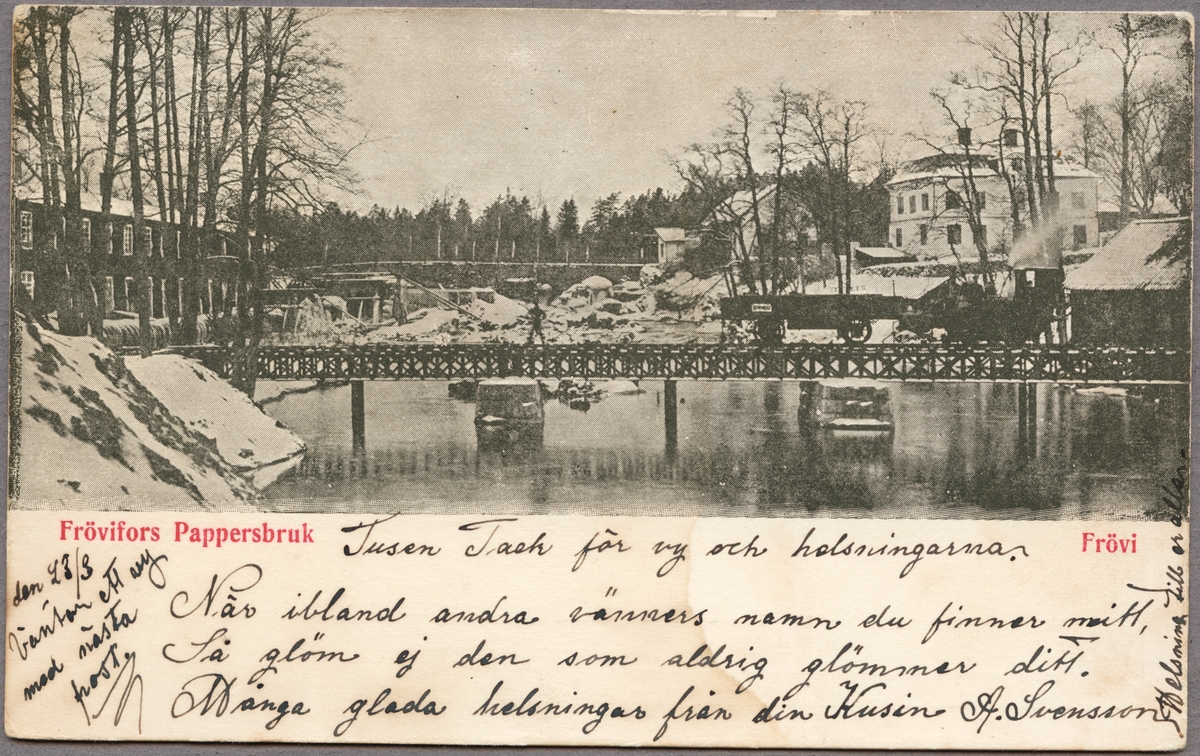 Frövifors Pappersbruk
Frövi
Tusen Tack för vy och helsningarna.
När ibland andra vänners namn du finner mitt,
Så glöm ej den som aldrig glömmer ditt.
Många glada helsningar från din Kusin A. Svensson
den 23/3
Väntar ett vy
med nästa
post.
Helsning till er alla.